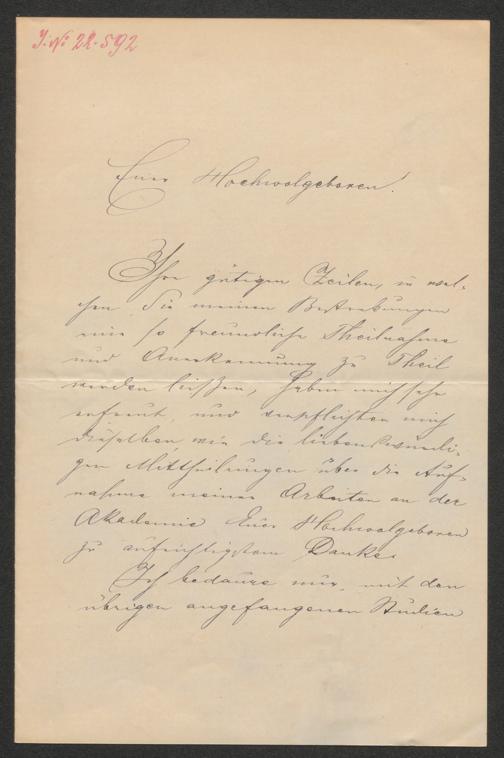 J. № 22.592
Euer Hochwolgeboren!
Ihre gütigen Zeilen, in wel-
chen Sie meinen Bestrebungen
eine so freundliche Theilnahme
und Anerkennung zu Theil
werden ließen, haben mich sehr
erfreut, und verpflichten mich
dieselben, wie die liebenswürdi-
gen Mittheilungen über die Auf-
nahme meiner Arbeiten an der
Akademie Euer Hochwolgeboren
zu aufrichtigstem Danke.
Ich bedaure nur, mit den
übrigen angefangenen Studien